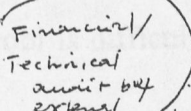 Financial/
Technical
audit by
external